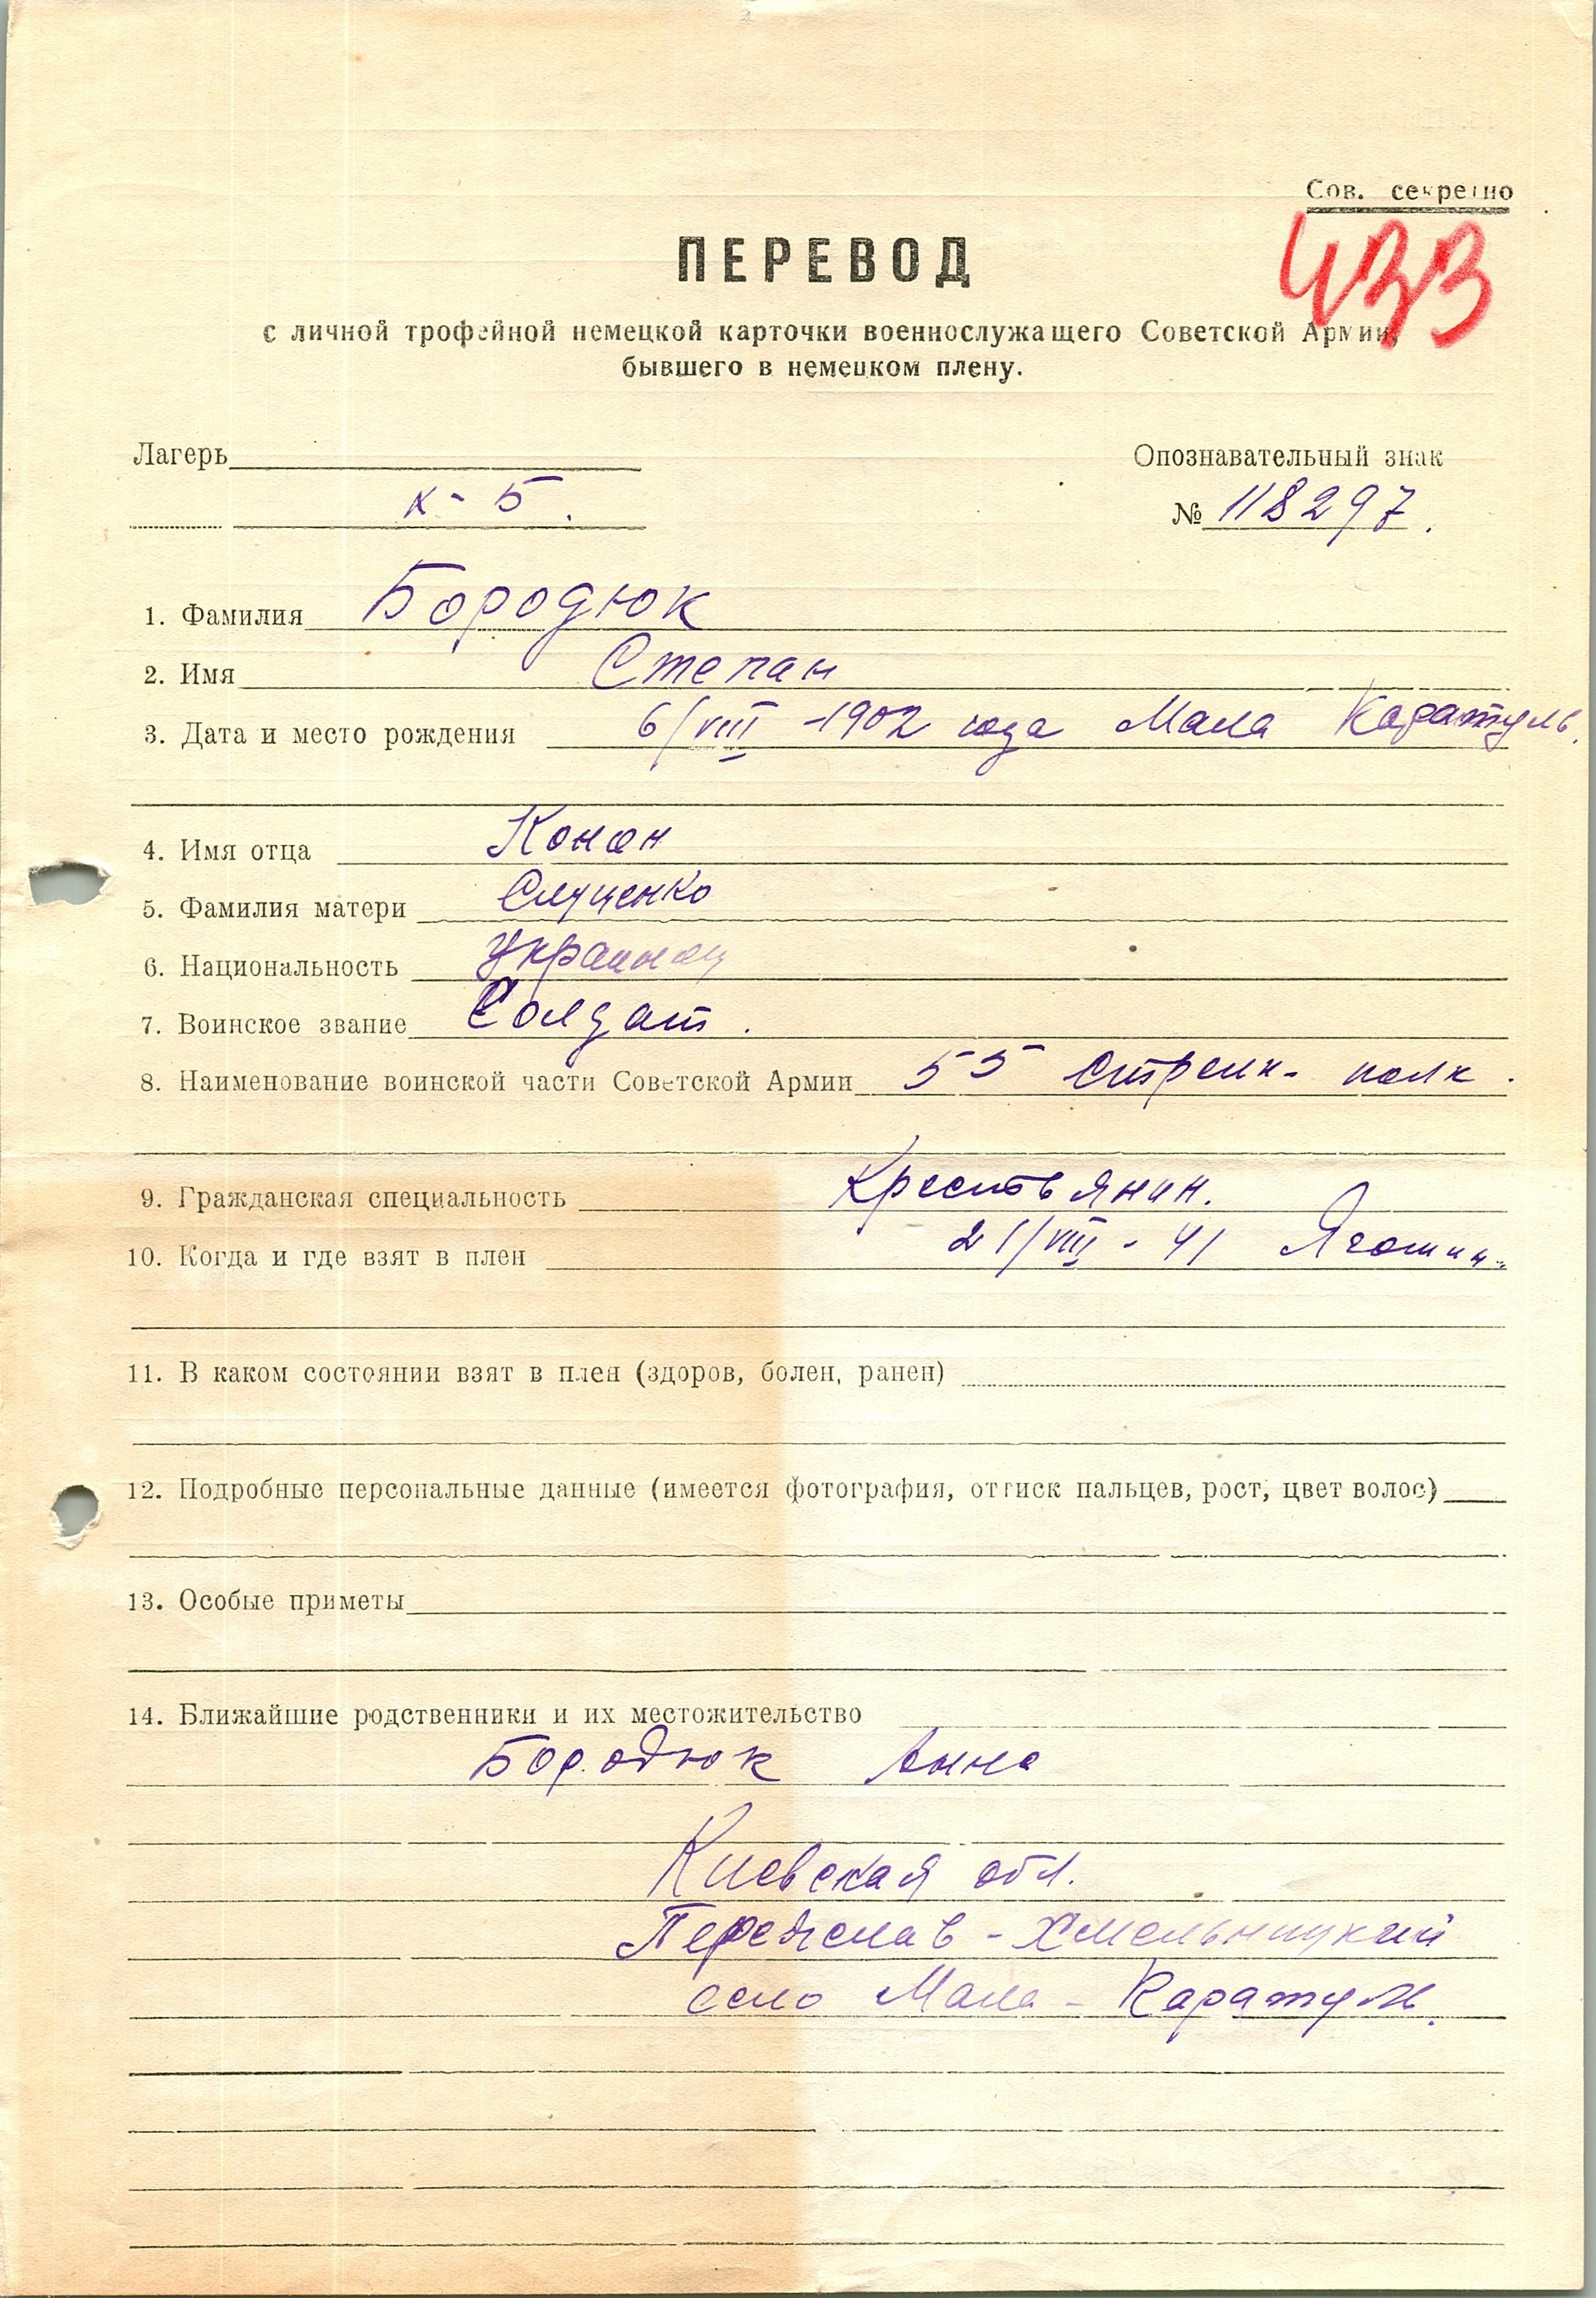 Сов. секретно
433
ПЕРЕВОД
с личной трофейной немецкой карточки военнослужащего Советской Армии,
бывшего в немецком плену.
Лагерь
Опознавательный знак
х - 5.
№ 118297.
1. Фамилия Бородюк
2. Имя Степан
3. Дата и место рождения 6/VIII -1902 года Мала Каратуль.
4. Имя отца Конон
5. Фамилия матери
6. Национальность Украинец
7. Воинское звание Солдат.
8. Наименование воинской части Советской Армии 55 стрелк- полк.
9. Гражданская специальность Крестьянин.
10. Когда и где взят в плен 21/VIII - 41 Яготин.
11. В каком состоянии взят в плен (здоров, болен, ранен)
12. Подробные персональные данные (имеется фотография, оттиск пальцев, рост, цвет волос)
13. Особые приметы
14. Ближайшие родственники и их местожительство
Бородюк Анна
Киевская обл.
Переяслав - Хмельницкий
село Мала - Каратуль.